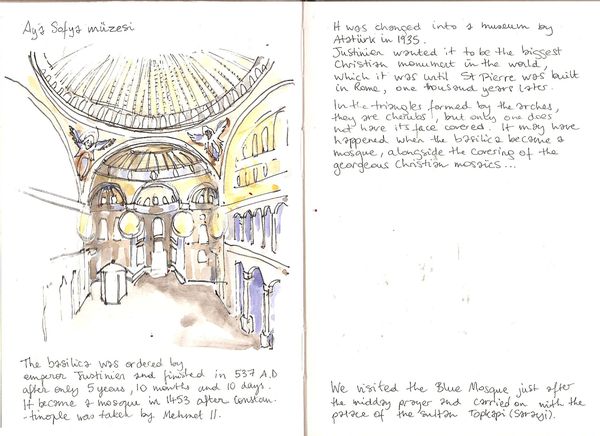 Aya Sofya müzesi
The basilica was ordered by
emperor Justinien and finished in 537 A.D
after only 5 years, 10 months and 10 days.
It became a mosque in 1453 after Constan-
-tinople was taken by Mehmet II.
It was changed into a museum by
Atatürk in 1935.
Justinien wanted it to be the biggest
Christian monument in the world,
which it was until St Pierre was built
in Rome, one thousand years later.
In the triangles formed by the arches,
they are cherubs, but only one does
not have its face covered. It may have
happened when the basilica became a
mosque, alongside the covering of the
georgeous Christian mosaics...
We visited the Blue Mosque just after
the midday prayer and carried on with the
palace of the sultan Topkapi (Sarayi).